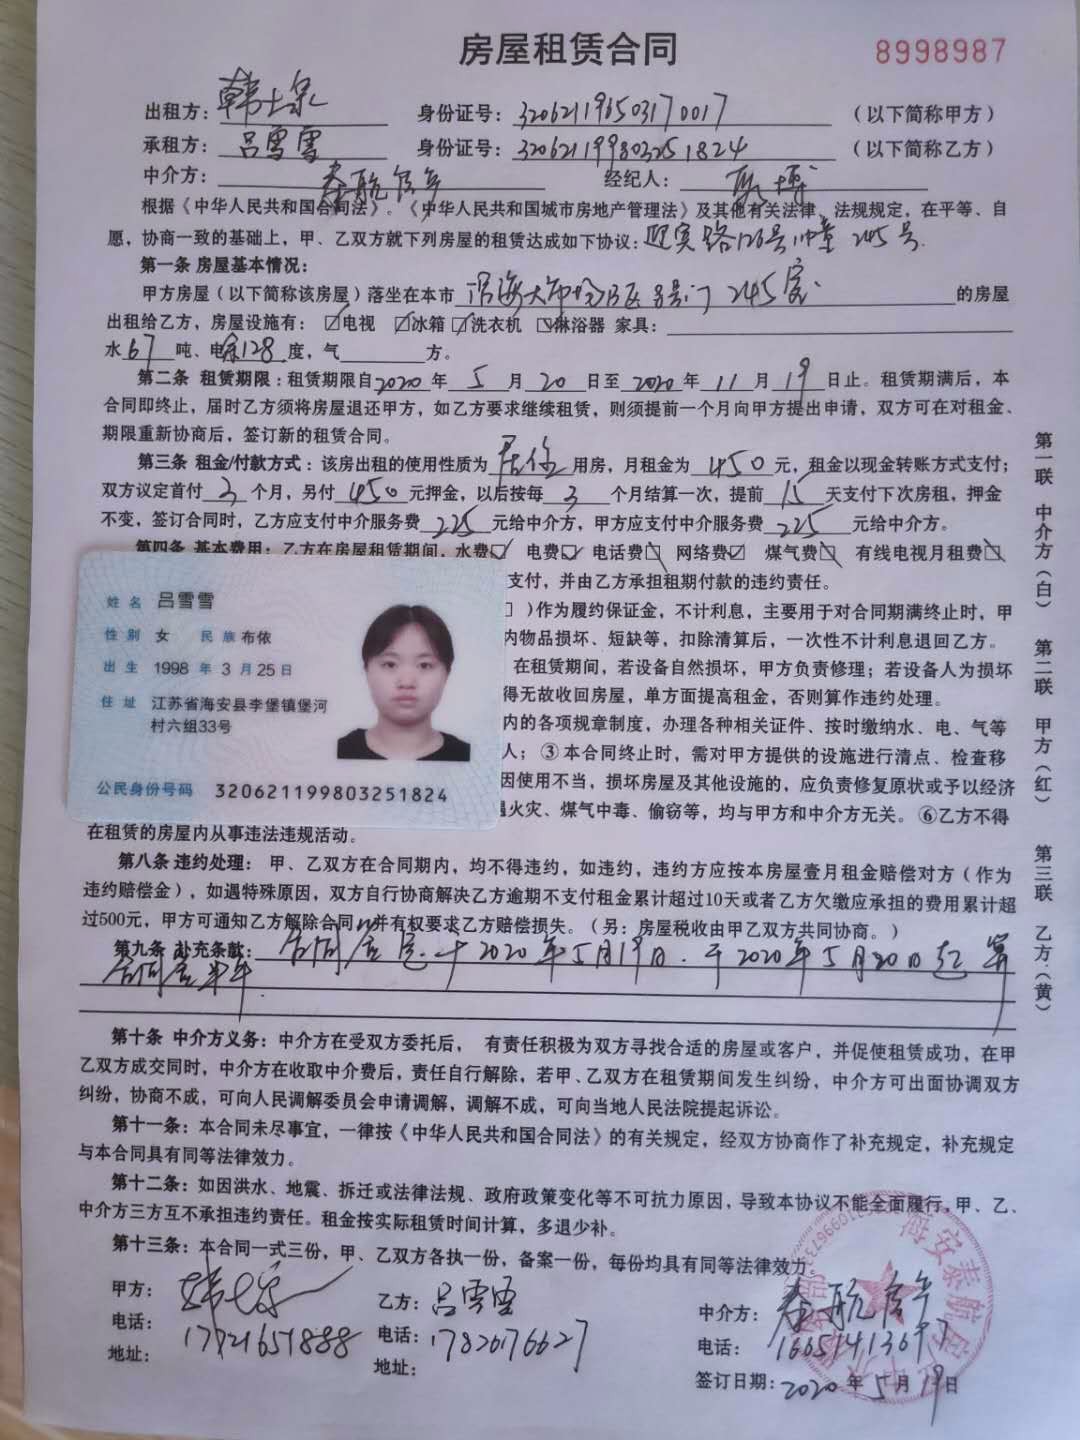 房屋租赁合同
8998987
出租方： 身份证号：320621196503170017（以下简称甲方）
承租方：吕雪雪 身份证号：320621199803251824（以下简称乙方）
中介方：泰航房产 经纪人：
根据《中华人民共和国合同法》。《中华人民共和国城市房地产管理法》及其他有关法律、法规规定，在平等、自
愿，协商一致的基础上，甲、乙双方就下列房屋的租赁达成如下协议：迎宾路126号 245号.
第一条 房屋基本情况：
甲方房屋（以下简称该房屋）落坐在本市 245室 的房屋
出租给乙方，房屋设施有：☑电视 ☑冰箱 ☑洗衣机 ☑淋浴器 家具：
水67吨、电余128度，气 方。
第二条 租赁期限：租赁期限自2020年5月20日至2020年11月19日止。租赁期满后，本
合同即终止，届时乙方须将房屋退还甲方，如乙方要求继续租赁，则须提前一个月向甲方提出申请，双方可在对租金、
期限重新协商后，签订新的租赁合同。
第三条 租金/付款方式：该房出租的使用性质为居住用房，月租金为450元，租金以现金转账方式支付；
双方议定首付3个月，另付450元押金，以后按每3个月结算一次，提前15天支付下次房租，押金
不变，签订合同时，乙方应支付中介服务费225元给中介方，甲方应支付中介服务费225元给中介方。
第四条 基本费用：乙方在房屋租赁期间，水费☑ 电费☑ 电话费☐ 网络费☑ 煤气费☐ 有线电视月租费☐
支付，并由乙方承担租期付款的违约责任。
）作为履约保证金，不计利息，主要用于对合同期满终止时，甲
内物品损坏、短缺等，扣除清算后，一次性不计利息退回乙方。
在租赁期间，若设备自然损坏，甲方负责修理；若设备人为损坏
得无故收回房屋，单方面提高租金，否则算作违约处理。
内的各项规章制度，办理各种相关证件、按时缴纳水、电、气等
人；③本合同终止时，需对甲方提供的设施进行清点、检查移
因使用不当，损坏房屋及其他设施的，应负责修复原状或予以经济
火灾、煤气中毒、偷窃等，均与甲方和中介方无关。⑥乙方不得
姓名 吕雪雪
性别 女 民族 布依
出生 1998年3月25日
住址 江苏省海安县李堡镇堡河
村六组33号
公民身份号码 320621199803251824
在租赁的房屋内从事违法违规活动。
第八条 违约处理：甲、乙双方在合同期内，均不得违约，如违约，违约方应按本房屋壹月租金赔偿对方（作为
违约赔偿金），如遇特殊原因，双方自行协商解决乙方逾期不支付租金累计超过10天或者乙方欠缴应承担的费用累计超
过500元，甲方可通知乙方解除合同，并有权要求乙方赔偿损失。（另：房屋税收由甲乙双方共同协商。）
第九条 补充条款：合同签定于2020年5月19日.于2020年5月20日起算
合同签半年.
第十条 中介方义务：中介方在受双方委托后， 有责任积极为双方寻找合适的房屋或客户，并促使租赁成功，在甲
乙双方成交同时，中介方在收取中介费后，责任自行解除，若甲、乙双方在租赁期间发生纠纷，中介方可出面协调双方
纠纷，协商不成，可向人民调解委员会申请调解，调解不成，可向当地人民法院提起诉讼。
第十一条：本合同未尽事宜，一律按《中华人民共和国合同法》的有关规定，经双方协商作了补充规定，补充规定
与本合同具有同等法律效力。
第十二条：如因洪水、地震、拆迁或法律法规、政府政策变化等不可抗力原因，导致本协议不能全面履行，甲、乙、
中介方三方互不承担违约责任。租金按实际租赁时间计算，多退少补。
第十三条：本合同一式三份，甲、乙双方各执一份，备案一份，每份均具有同等法律效力。
甲方： 乙方：吕雪雪 中介方：泰航房产
电话：17721651888 电话：17826176627 电话：
地址： 地址： 签订日期：2020年5月19日
第一联 中介方（白） 第二联 甲方（红） 第三联 乙方：（黄）